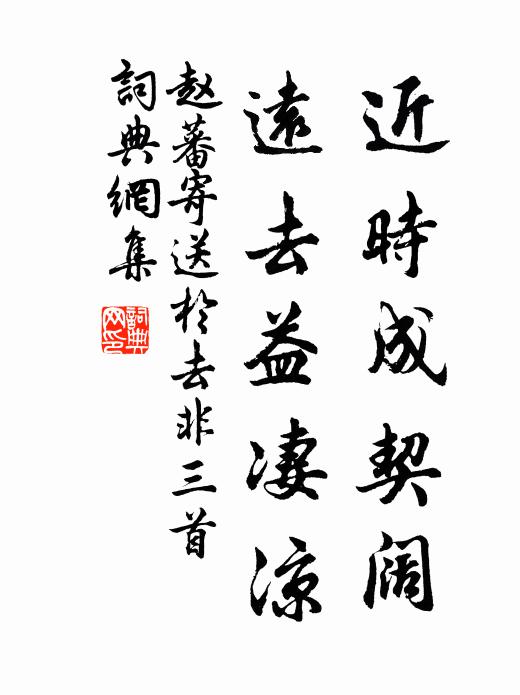 近時成契阔
遠去益凄涼
赵蕃寄送於去非三首
詞典網集
詞典网印